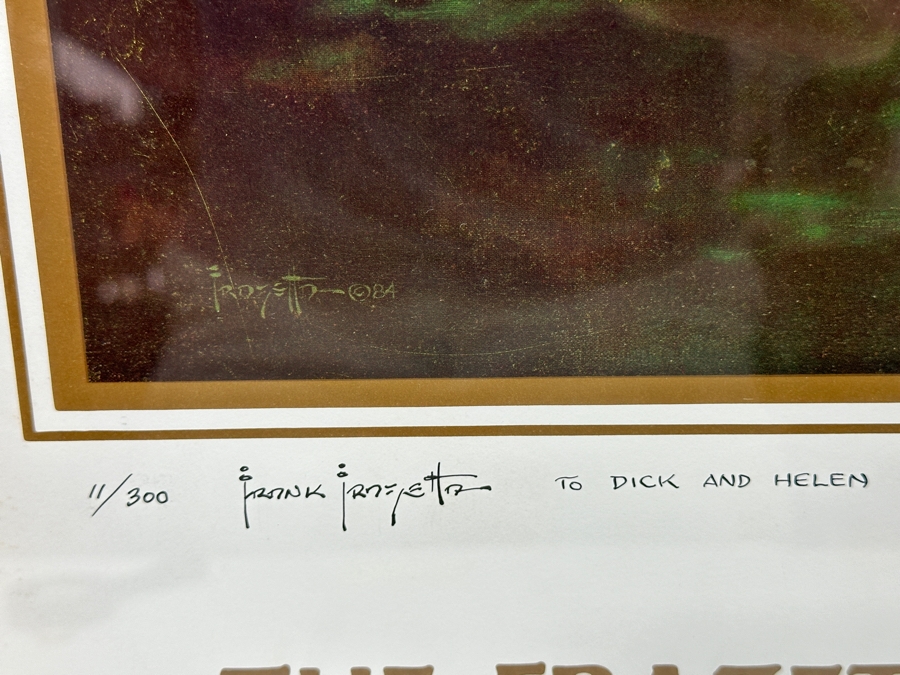 Frazetta ©84
11/300 Frank Frazetta TO DICK AND HELEN
THE FRAZET